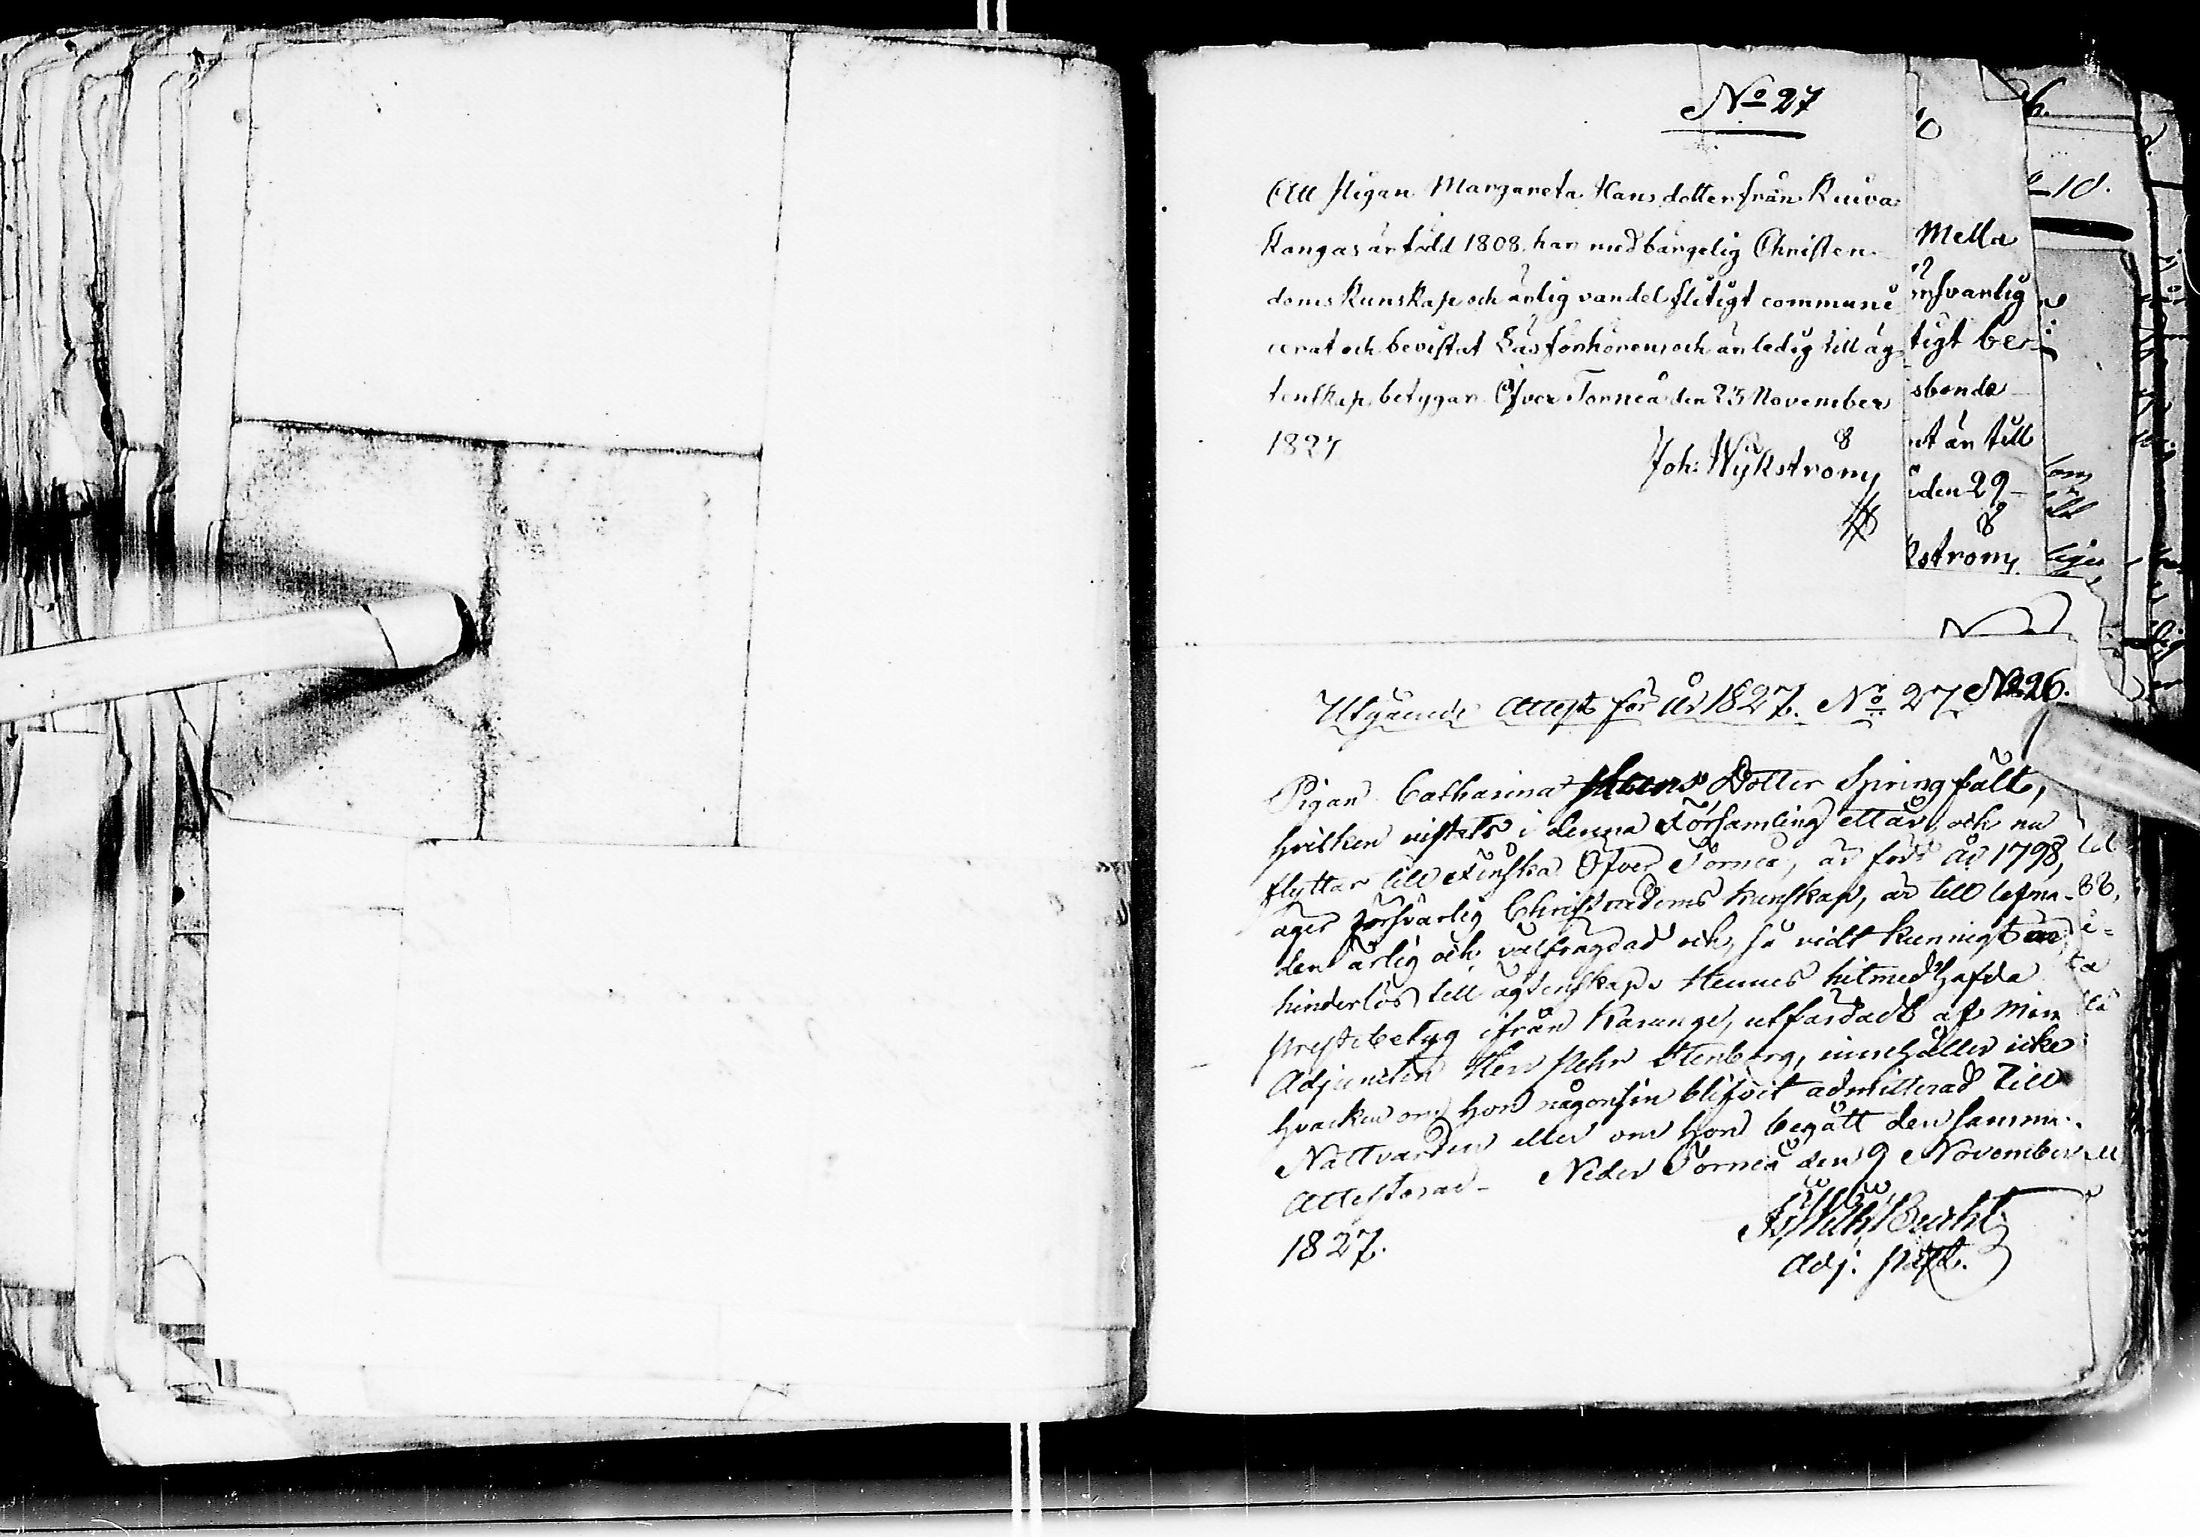 No 27
Att Pigan Margareta Hansdotter från Kuiva
Kangas är född 1808. har medbärgelig Christen-
doms Kunskap och ärlig vandel flitigt communi
cerat och bevistat Läsförhören, och är ledig till äg-
tenskap, betygar Öfver Torneå den 23 November
1827
Joh: Wykström
Mella
nsvarlig
tigt ber
sbonde
ut än till
den 29
kström
10.
Utgående Attest för År 1827. No 27 No 26.
Pigan Catharina Dotter Springfält,
hvilken vistats i denna Församling ett år, och nu
flyttar till Finska Öfver Torneå, är född år 1798,
äger försvarlig Christendoms kunskap, är till lefna-
den ärlig och välfrägdad och, så vidt kunnigt är,
hinderlös till ägtenskap. Hennes hitmedhafda
prestebetyg ifrån Karunge, utfärdadt af Min
Adjuncten Herr Pehr Stenborg, innehåller icke
hvarken om hon någonsin blifvit admitterad till
Nattvarden eller om hon begått densamma.
Attesterar Neder Torneå den 9 November
1827.
Bucht
Adj. Past.